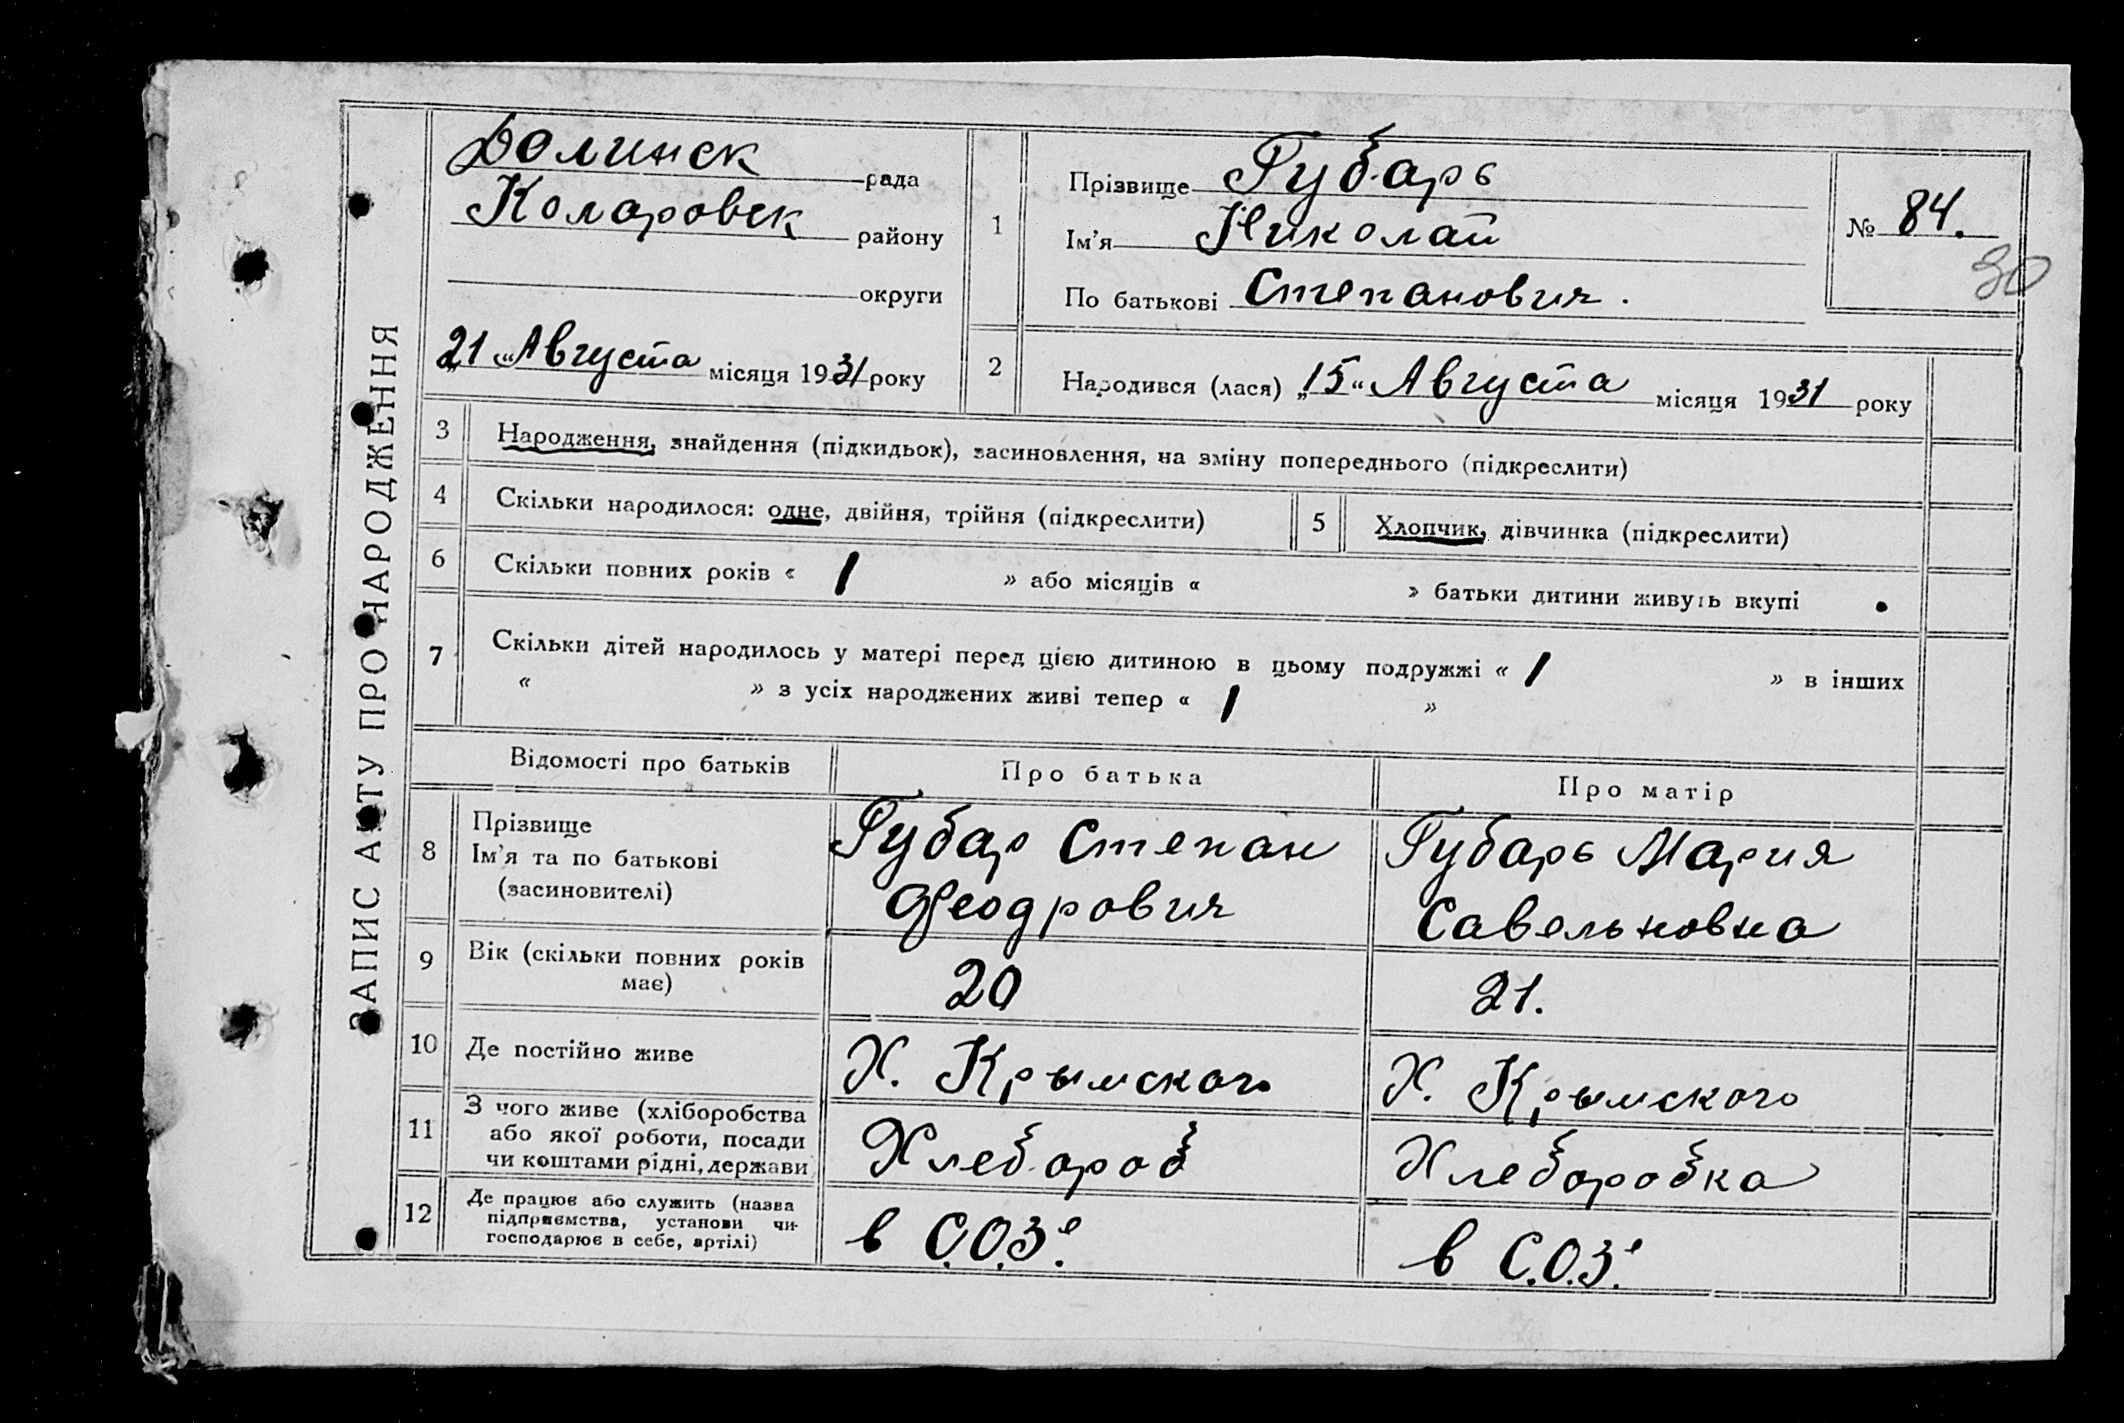 ЗАПИС АКТУ ПРО НАРОДЖЕННЯ
Долинск рада
Коларовск району
округи
21 „Августа місяця 1931 року
1
Прізвище Губарь
Ім'я Николай
По батькові Степанович.
№ 84.
30
2
Народився (лася) „15“ Августа місяця 1931 року
3 Народження, знайдення (підкидьок), засиновлення, на зміну попереднього (підкреслити)
4 Скільки народилося: одне, двійня, трійня (підкреслити)
5 Хлопчик, дівчинка (підкреслити)
6 Скільки повних років « 1 » або місяців « » батьки дитини живуть вкупі
7 Скільки дітей народилось у матері перед цією дитиною в цьому подружжі « 1 » в інших
« » з усіх народжених живі тепер « 1 »
Відомості про батьків
Про батька
Про матір
8 Прізвище
Ім'я та по батькові
(засиновителі)
Губар Степан
Феодрович
Губарь Мария
Савельновна
9 Вік (скільки повних років
має)
20
21.
10 Де постійно живе
Х. Крымского
Х. Крымского
11 З чого живе (хліборобства
або якої роботи, посади
чи коштами рідні, держави
Хлебороб
Хлеборобка
12 Де працює або служить (назва
підприємства, установи чи-
господарює в себе, артілі)
в С.О.З.е
в С.О.З.е